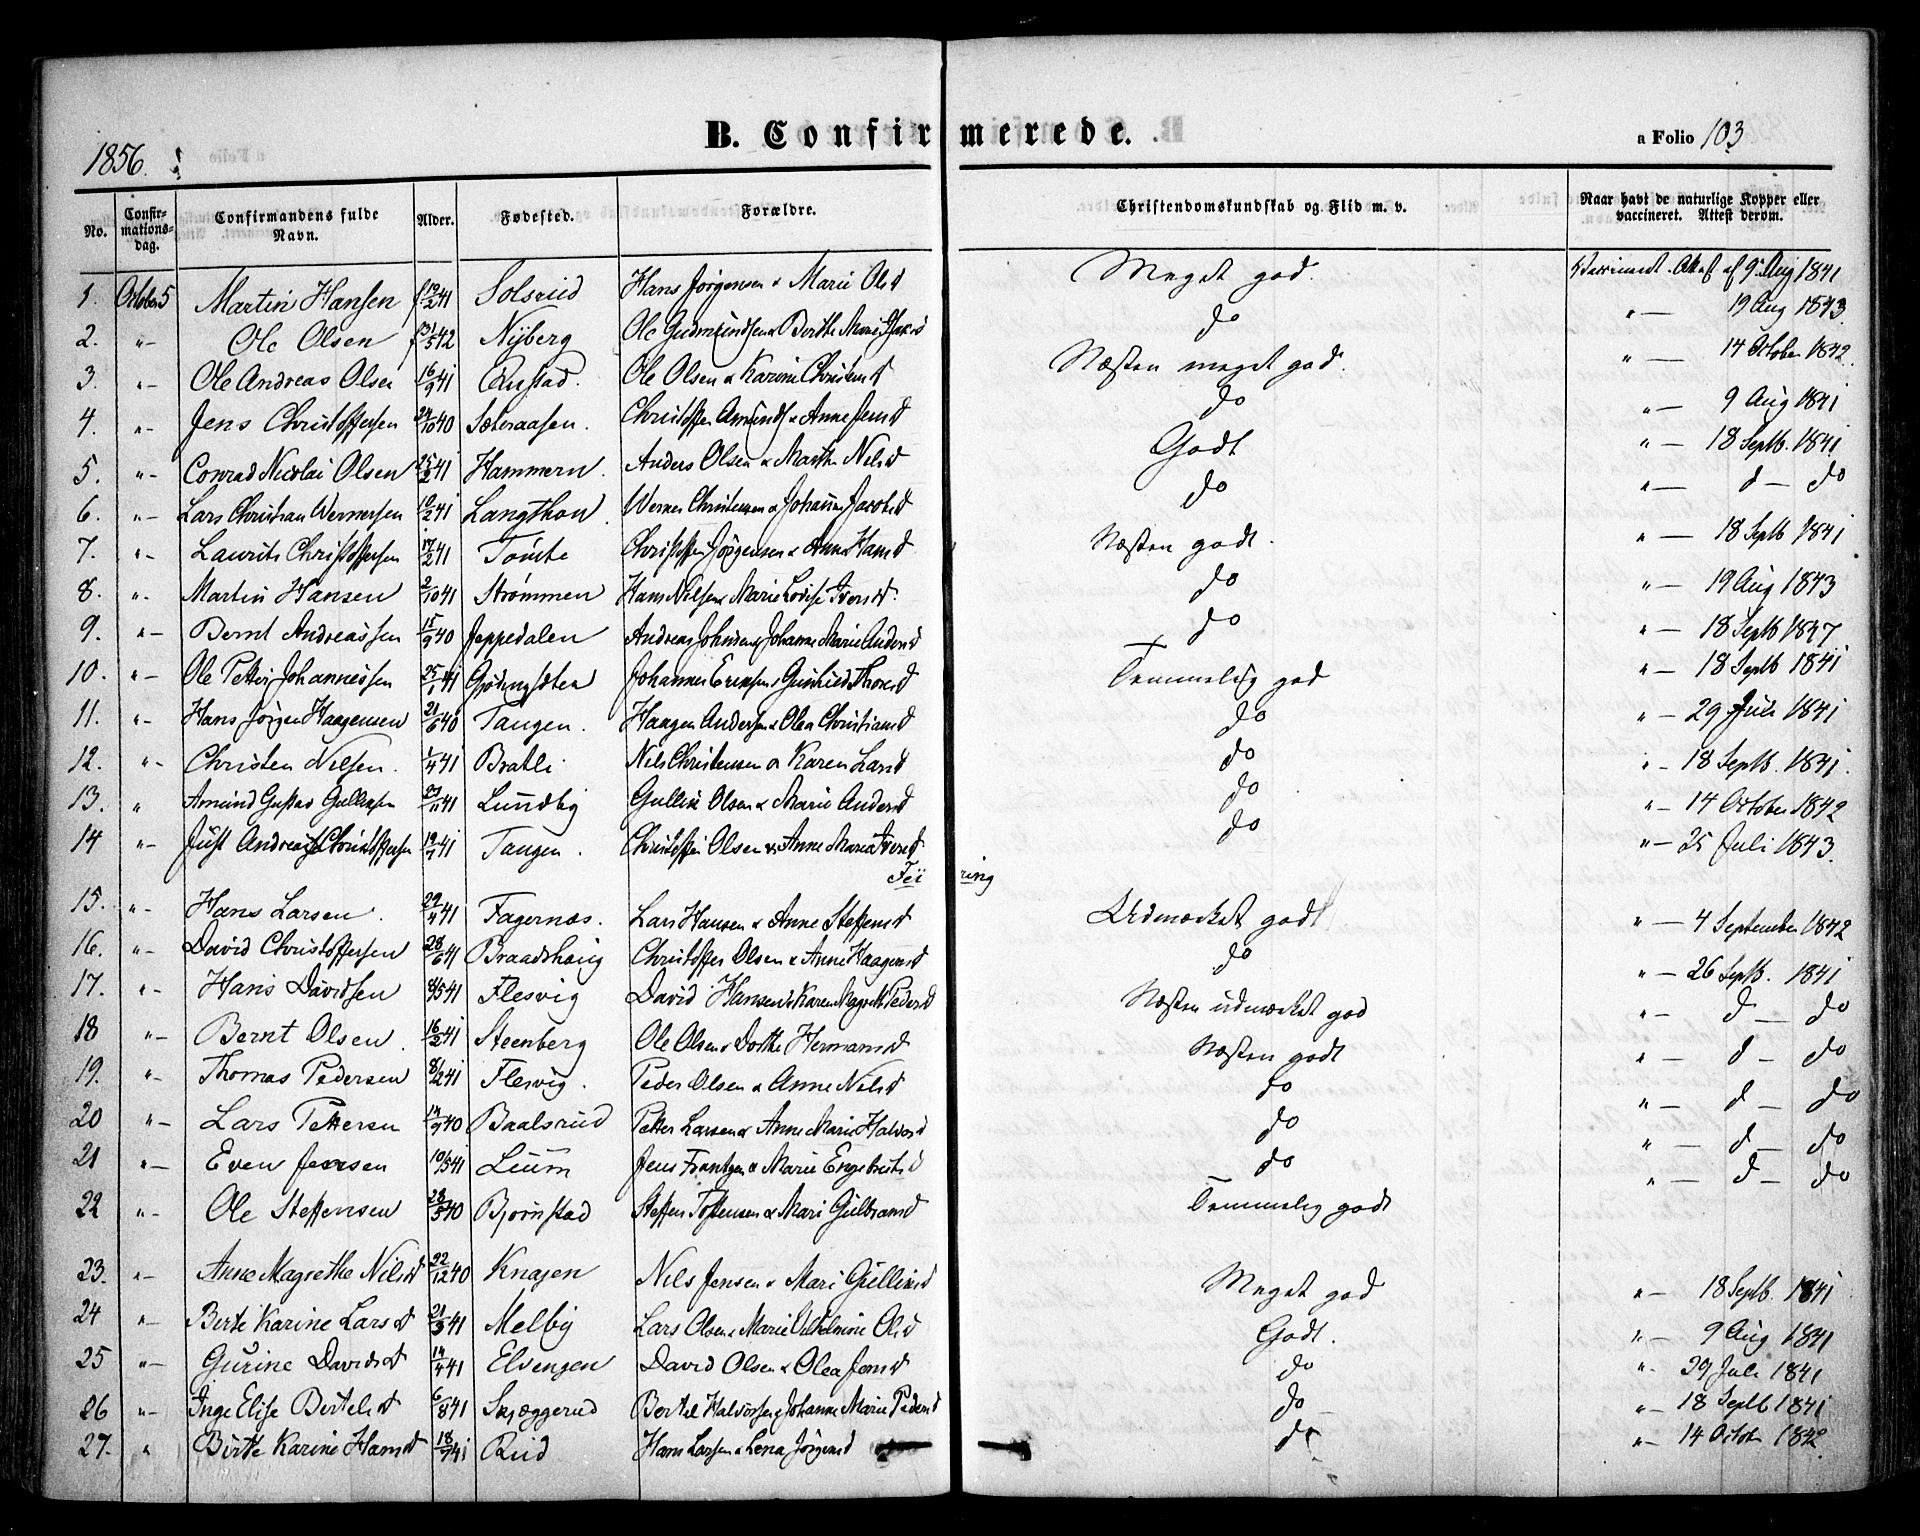 1856.
B. Confirmerede.
a Folio 103
No.
Confirmationsdag.
Confirmandens fulde Navn.
Alder.
Fødested.
Forældre.
Christendomskundskab og Flid m. v.
Naar havt de naturlige Kopper eller vaccineret. Attest derom.
1. October 5 Martin Hansen f 19/2 41 Solsrud Hans Jørgensen & Marie Olsd Meget god. Vaccineret. Attest af 9 Aug 1841
2. "- Ole Olsen f 31/5 42 Nyberg Ole Gudmundsen & Berthe Marie do "— 19 Aug 1843.
3. "- Ole Andreas Olsen 16/9 41 Ole Olsen & Karine Christensd Næsten meget god. "— 14 October 1842.
4. "- Jens Christoffersen 24/10 40 Sæteraasen. Christoffer Amunds & Anne Jensd do "— 9 Aug 1841
5. "- Conrad Nicolai Olsen 25/2 41 Hammern. Anders Olsen & Marthe Nilsd Godt "— 18 Septb. 1841
6. "- Lars Christian Wernersen 10/2 41 Langthon. Werner Christensen & Johanne Jacobsd do "— d — do
7. "- Laurits Christoffersen 17/2 41 Tømte Christoffer Jørgensen & Anne Hansd Næsten godt. "— 18 Septb 1841
8. "- Martin Hansen 2/10 41 Strømmen Hans Nilsen & Marie Lovise Iversd. do "— 19 Aug 1843
9. "- Bernt Andreassen 15/9 40 Jeppedalen Andreas Johnsen & Johanne Marie Andersd do "— 18 Septb 1847
10. "- Ole Petter Johannessen 25/1 41 Johannes Ericksen & Gunhild Thoresd Temmelig god "— 18 Septb 1841
11. "- Hans Jørgen Haagensen 21/6 40 Tangen. Haagen Andersen & Olea Christiansd do "— 29 Juli 1841
12. "- Christen Nilsen. 1/4 41 Bratli Nils Christensen & Karen Larsd do "— 18 Septb. 1841.
13. " Amund Gustav Gullixsen 27/11 41 Lundby Gullik Olsen & Marie Andersd do "— 14 October 1842
14 "- Just Andreas Christoffersen 19/7 41 Tangen. Christoffer Olsen & Anne Maria Iversd do "— 25 Juli 1843.
Feiring
15. "- Hans Larsen. 29/4 41 Fagernæs. Lars Hansen & Anne Steffensd Udmærket godt "— 4 September 1842
16. "- David Christoffersen 28/6 41 Braadshaug Christoffer Olsen & Anne Haagensd do "— 26 Septb. 1841
17. "- Hans Davidsen 8/5 41 Flesvig David Hansen & Karen Magreth Pedersd Næsten udmærket god "— d — do
18 "- Bernt Olsen. 16/2 41 Steenberg Ole Olsen & Dorthe Hermansd Næsten godt "— d — do
19. "- Thomas Pedersen 8/2 41 Flesvig. Peder Olsen & Anne Nilsd do "— d — do
20 "- Lars Pettersen 14/9 40 Baalsrud Petter Larsen & Anne Marie Halvorsd do "— d — do
21 "- Even Jensen 10/5 41 Lium Jens Frantzen & Marie Engebretsd do "— d — do
22 "- Ole Steffensen 28/5 40 Bjørnstad Steffen Toftensen & Mari Gulbransd Temmelig godt
23. "- Anne Magrethe Nilsd 22/12 40 Knajen Nils Jensen & Mari Gullixsd Meget god "— 18 Septb. 1841
24 "- Berte Karine Larsd 21/3 41 Melby Lars Olsen & Marie Vilhelmine Olsd Godt. "— 9 Aug 1841
25 "- Gurine Davidsd 14/4 41 Elvengen David Olsen & Olea Jensd do "- 29 Juli 1841
26 "- Inge Elise Bertelsd 6/8 41 Skjæggerud Bertel Halvorsen & Johanne Marie Pedersd do "— 18 Septb 1841
27. " Birtte Karine Hansd 18/7 41 Rud Hans Larsen & Lena Jørgensd do "— 14 Octobr 1842.